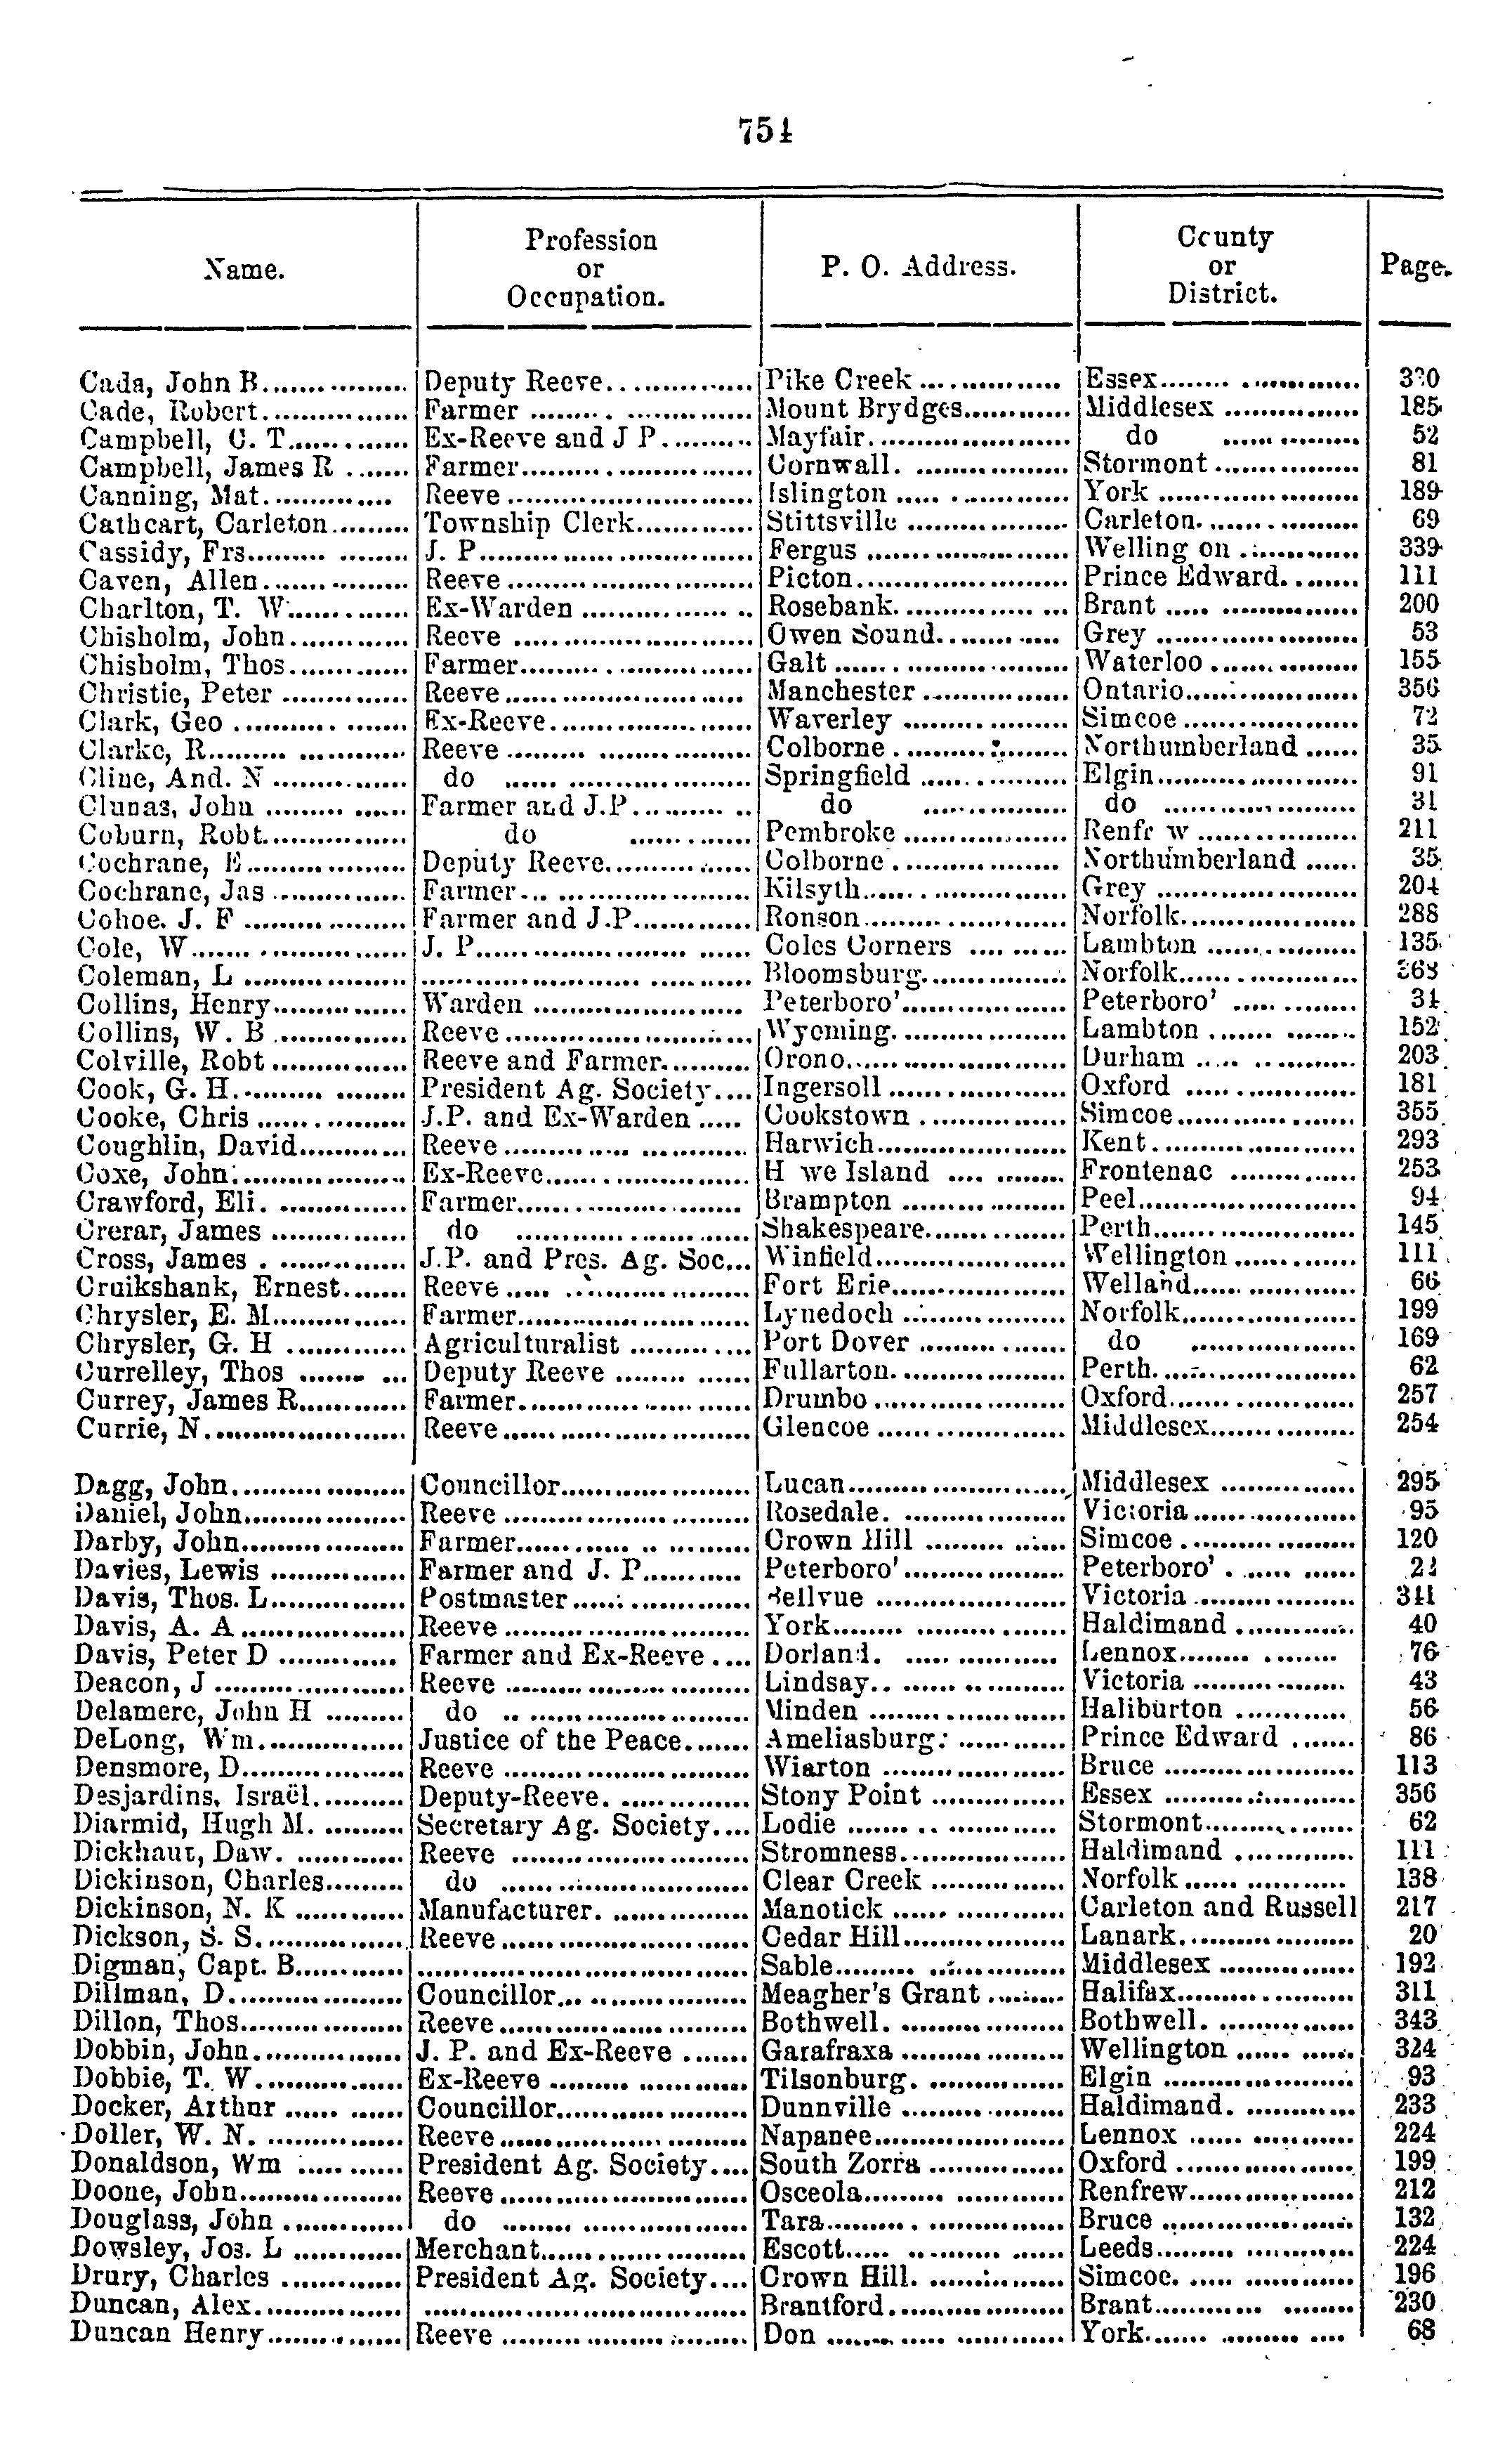 754
Name. Profession or Occupation. P. O. Address. County or District. Page.
Cada, John B. Deputy Reeve Pike Creek Essex
Cade, Robert Farmer Mount Brydges Middlesex 185
Campbell, C. T. Ex-Reeve and J P. Mayfair. do 52
Campbell, James R Farmer Cornwall. Stormont 81
Canning, Mat. Reeve Islington York 189
Cathcart, Carleton Township Clerk Stittsville Carleton. 69
Cassidy, Frs. J. P. Fergus Welling on 339
Caven, Allen Reeve Picton Prince Edward. 111
Charlton, T. W. Ex-Warden Rosebank. Brant 200
Chisholm, John Reeve Owen Sound Grey 53
Chisholm, Thos Farmer Galt Waterloo 155
Christie, Peter Reeve Manchester Ontario 356
Clark, Geo Ex-Reeve Waverley Simcoe 72
Clarke, R. Reeve Colborne Northumberland 35
Cline, And. N do Springfield Elgin 91
Clunas, John Farmer and J.P. do do 31
Coburn, Robt. do Pembroke Renfr w 211
Cochrane, E Deputy Reeve Colborne Northumberland 35
Cochrane, Jas Farmer Kilsyth Grey 204
Cohoe. J. F Farmer and J.P. Ronson Norfolk 288
Cole, W. J. P. Coles Corners Lambton 135
Coleman, L Bloomsburg. Norfolk
Collins, Henry Warden Peterboro' Peterboro' 34
Collins, W. B Reeve Wyoming. Lambton 152
Colville, Robt Reeve and Farmer. Orono Durham 203
Cook, G. H. President Ag. Society Ingersoll Oxford 181
Cooke, Chris J.P. and Ex-Warden Cookstown Simcoe 355
Coughlin, David Reeve Harwich Kent 293
Coxe, John Ex-Reeve H we Island Frontenac 253
Crawford, Eli. Farmer Brampton Peel 94
Crerar, James do Shakespeare Perth 145
Cross, James J.P. and Pres. Ag. Soc Winfield Wellington 111
Cruikshank, Ernest Reeve Fort Erie Welland 66
Chrysler, E. M. Farmer Lynedoch Norfolk 199
Chrysler, G. H Agriculturalist Port Dover do 169
Currelley, Thos Deputy Reeve Fullarton. Perth. 62
Currey, James R Farmer Drumbo Oxford 257
Currie, N. Reeve Glencoe Middlesex 254
Dagg, John Councillor Lucan Middlesex 295
Daniel, John Reeve Rosedale. Victoria 95
Darby, John Farmer Crown Hill Simcoe 120
Davies, Lewis Farmer and J. P. Peterboro' Peterboro'
Davis, Thos. L. Postmaster Bellvue Victoria
Davis, A. A Reeve York Haldimand 40
Davis, Peter D Farmer and Ex-Reeve Dorland. Lennox 76
Deacon, J Reeve Lindsay Victoria 43
Delamere, John H do Minden Haliburton 56
DeLong, Wm. Justice of the Peace Ameliasburg Prince Edward 86
Densmore, D. Reeve Wiarton Bruce 113
Desjardins, Israël Deputy-Reeve. Stony Point Essex 356
Diarmid, Hugh M. Secretary Ag. Society Lodie Stormont 62
Dickhaut, Daw. Reeve Stromness Haldimand 111
Dickinson, Charles do Clear Creek Norfolk 138
Dickinson, N. K Manufacturer. Manotick Carleton and Russell 217
Dickson, S. S. Reeve Cedar Hill Lanark. 20
Digman, Capt. B. Sable Middlesex 192
Dillman, D. Councillor Meagher's Grant Halifax 311
Dillon, Thos. Reeve Bothwell. Bothwell. 343
Dobbin, John J. P. and Ex-Reeve Garafraxa Wellington 324
Dobbie, T. W. Ex-Reeve Tilsonburg. Elgin 93
Docker, Arthur Councillor Dunnville Haldimand. 233
Doller, W. N. Reeve Napanee Lennox 224
Donaldson, Wm President Ag. Society South Zorra Oxford 199
Doone, John Reeve Osceola Renfrew 212
Douglass, John do Tara Bruce 132
Dowsley, Jos. L Merchant Escott Leeds 224
Drury, Charles President Ag. Society Crown Hill. Simcoe. 196
Duncan, Alex. Brantford. Brant 230
Duncan Henry Reeve Don York. 68